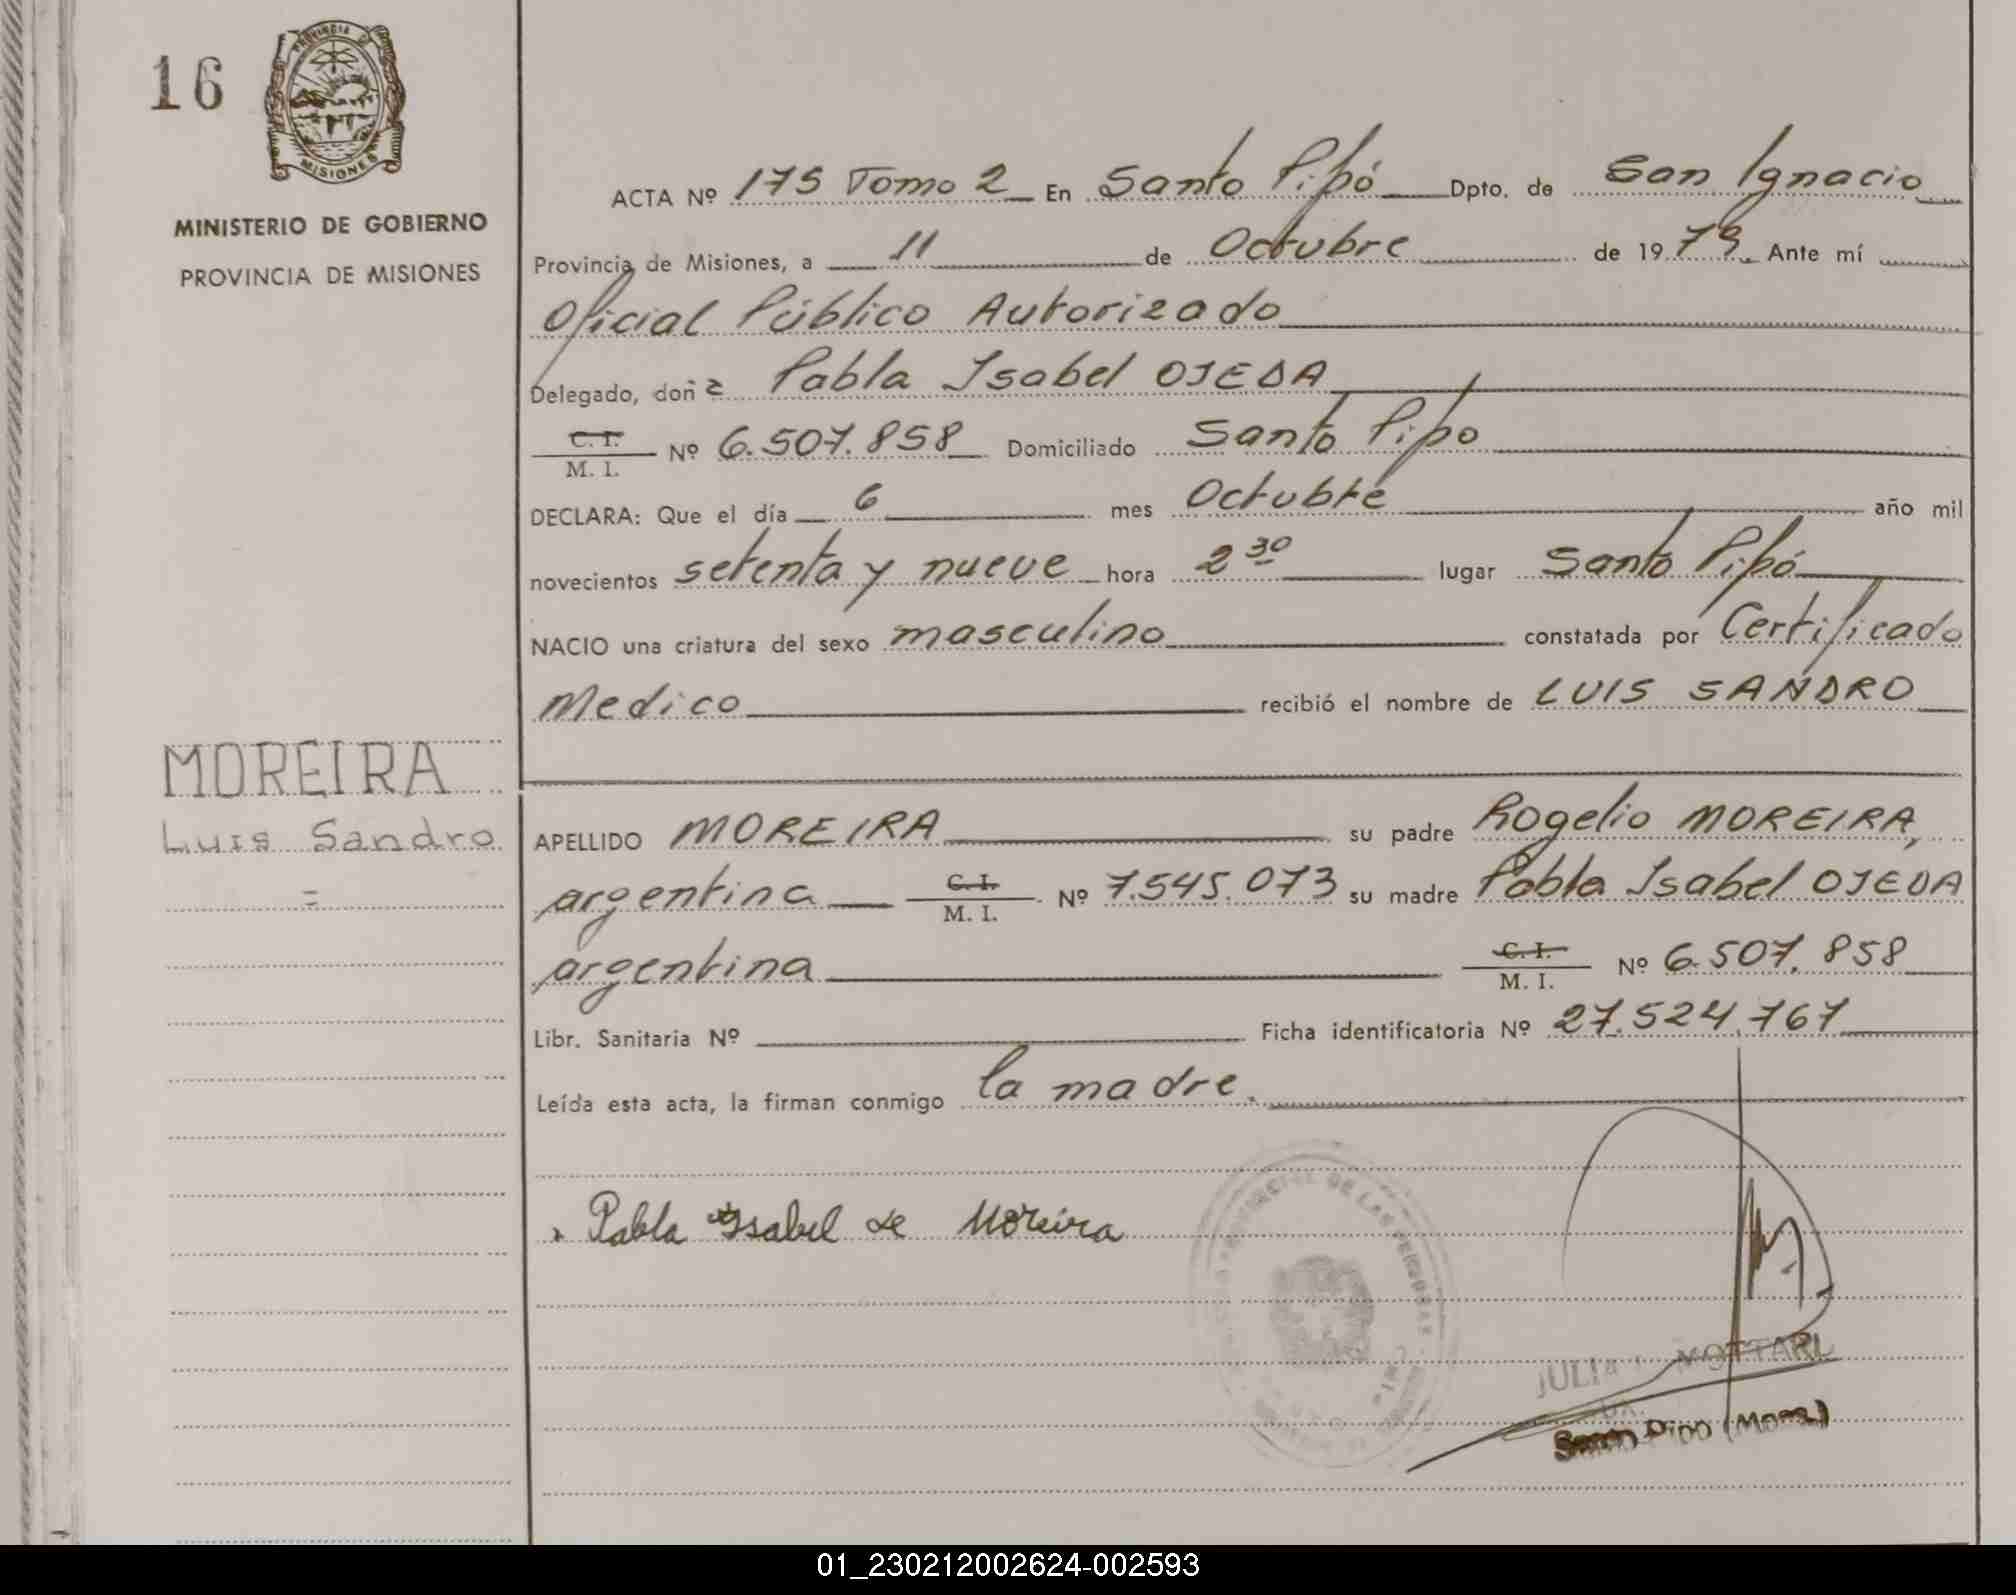 16
PROVINCIA DE
MISIONES
MINISTERIO DE GOBIERNO
PROVINCIA DE MISIONES
ACTA Nº 175 Tomo 2 En Santo Pipó Dpto. de San Ignacio
Provincia de Misiones, a 11 de Octubre de 1979. Ante mí
Oficial Público Autorizado
Delegado, doña Pabla Isabel OJEDA
C. I. M. I. Nº 6.507.858 Domiciliado Santo Pipo
DECLARA: Que el día 6 mes Octubre año mil
novecientos setenta y nueve hora 2 30 lugar Santo Pipó
NACIO una criatura del sexo masculino constatada por Certificado
Medico recibió el nombre de LUIS SANDRO
MOREIRA
Luis Sandro
=
APELLIDO MOREIRA su padre Rogelio MOREIRA,
argentina C. I. M. I. Nº 7.545.073 su madre Pabla Isabel OJEDA
argentina C. I. M. I. Nº 6.507.858
Libr. Sanitaria Nº Ficha identificatoria Nº 27.524.767
Leída esta acta, la firman conmigo la madre.
Pabla Isabel de Moreira
01_230212002624-002593